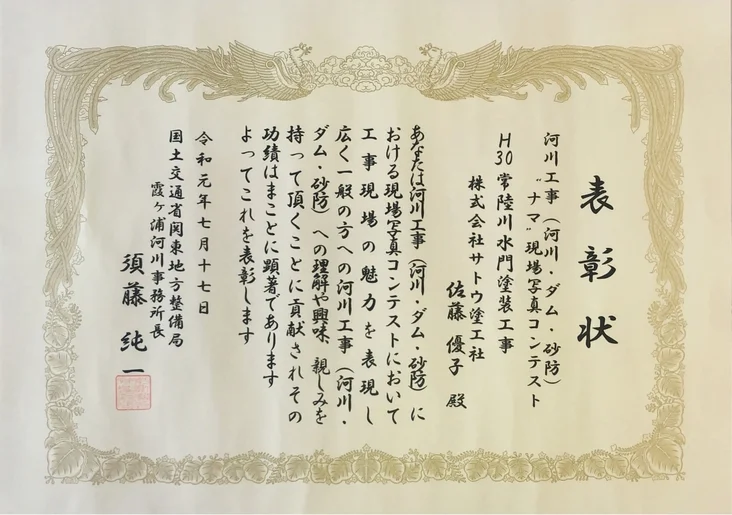 表彰状
河川工事（河川・ダム・砂防）
“ナマ”現場写真コンテスト
H30常陸川水門塗装工事
株式会社サトウ塗工社
佐藤優子 殿
あなたは河川工事（河川・ダム・砂防）に
おける現場写真コンテストにおいて
工事現場の魅力を表現し
広く一般の方への河川工事（河川・
ダム・砂防）への理解や興味、親しみを
持って頂くことに貢献されその
功績はまことに顕著であります
よってこれを表彰します
令和元年七月十七日
国土交通省関東地方整備局
霞ヶ浦河川事務所長
須藤純一